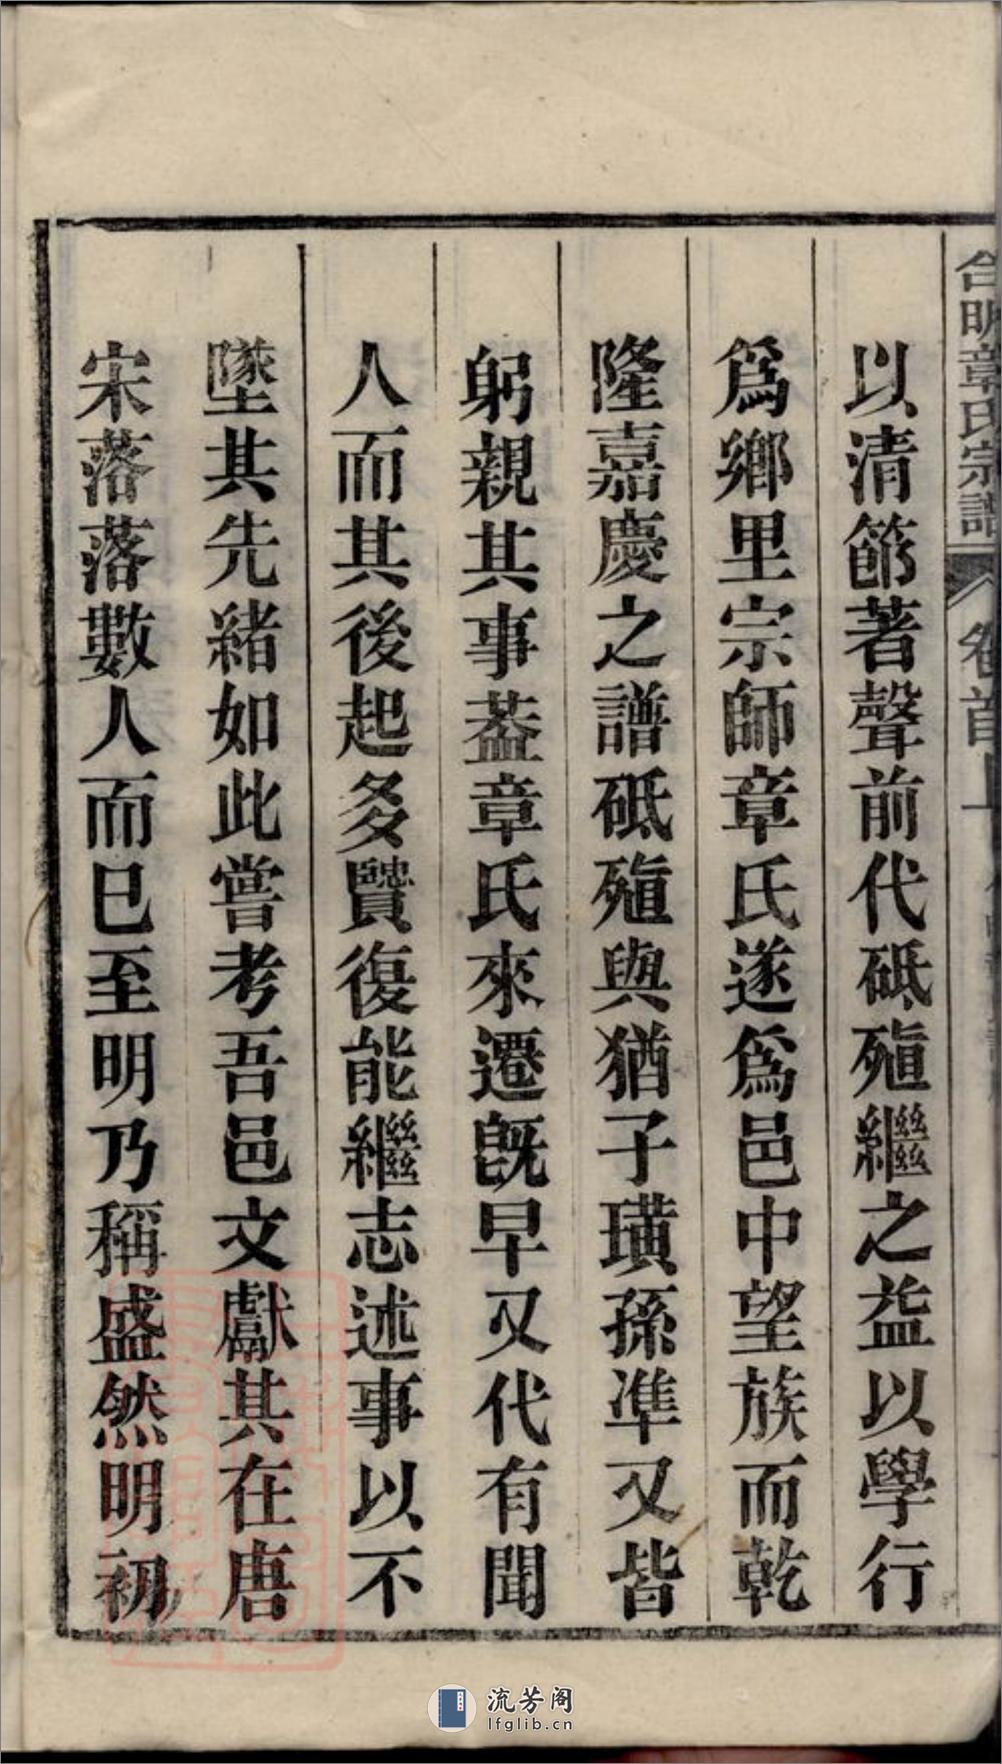 合明章氏宗譜 卷首上
以清節著聲前代砥殖繼之益以學行
爲鄉里宗師章氏遂爲邑中望族而乾
隆嘉慶之譜砥殖與猶子璜孫準又皆
躬親其事葢章氏來遷既早又代有聞
人而其後起多賢復能繼志述事以不
墜其先緒如此嘗考吾邑文獻其在唐
宋落落數人而已至明乃稱盛然明初
流芳阁
lfglib.cn